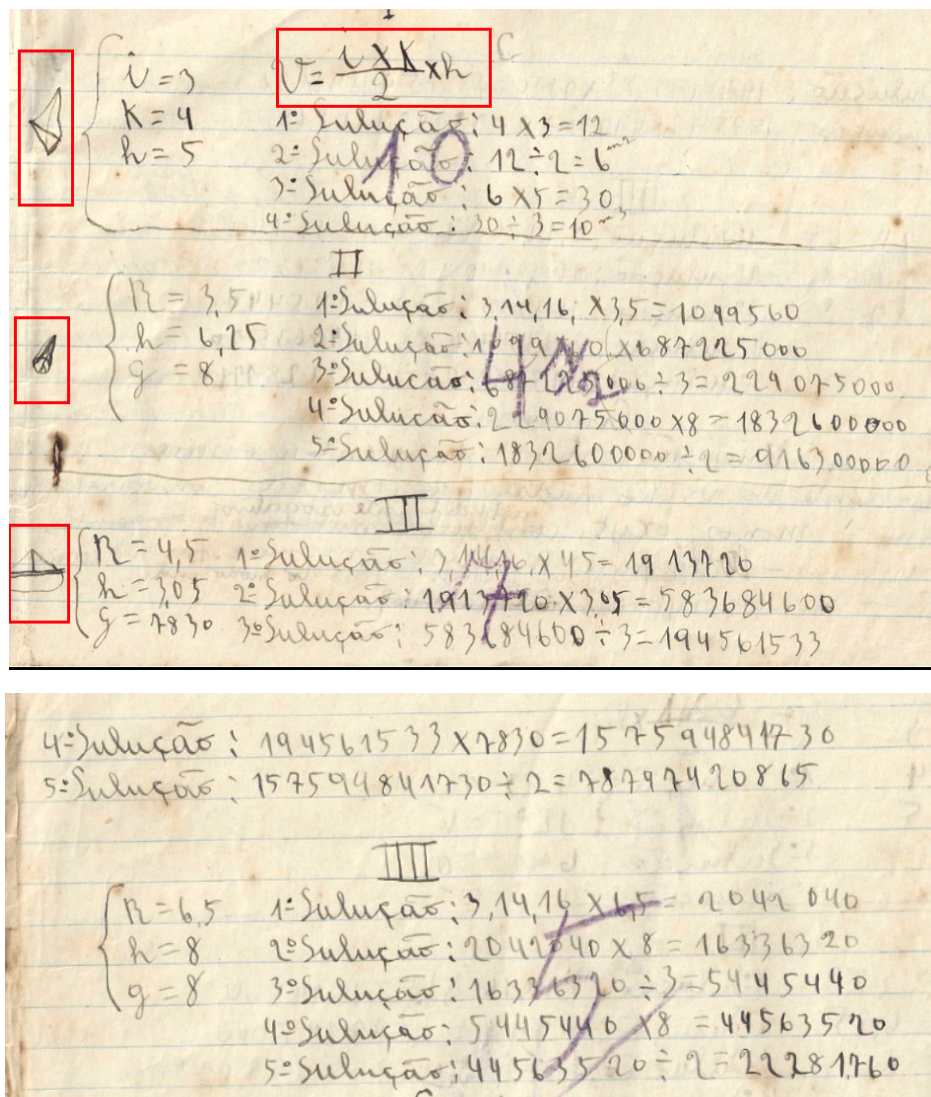 I
i = 3
V = i x K / 2 x h
K = 4
1º Sulução: 4 x 3 = 12
h = 5
2º Sulução: 12 ÷ 2 = 6 m2
10
3º Sulução: 6 x 5 = 30
4º Sulução: 30 ÷ 3 = 10 m3
II
R = 3,5
1º Sulução: 3,14,16, x 3,5 = 1099560
h = 6,25
2º Sulução: 1099560 x 687225000
g = 8
3º Sulução: 687225000 ÷ 3 = 229075000
4 1/2
4º Sulução: 229075000 x 8 = 1832600000
5º Sulução: 1832600000 ÷ 2 = 916300000
III
R = 4,5 1º Sulução: 3,1416, x 45 = 1913720
h = 3,05 2º Sulução: 1913720 x 3,05 = 583684600
g = 7830 3º Sulução: 583684600 ÷ 3 = 194561533
4º Sulução: 194561533 x 7830 = 157594841730
5º Sulução: 157594841730 ÷ 2 = 78797420865
IIII
R = 6,5 1º Sulução: 3,14,16 x 6,5 = 2042040
h = 8 2º Sulução: 2042040 x 8 = 16336320
g = 8 3º Sulução: 16336320 ÷ 3 = 5445440
5
4º Sulução: 5445440 x 8 = 44563520
5º Sulução: 44563520 ÷ 2 = 22281760